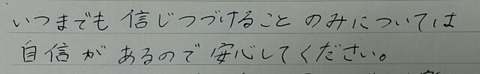 いつまでも 信じつづけること のみについては
自信が あるので 安心してください。